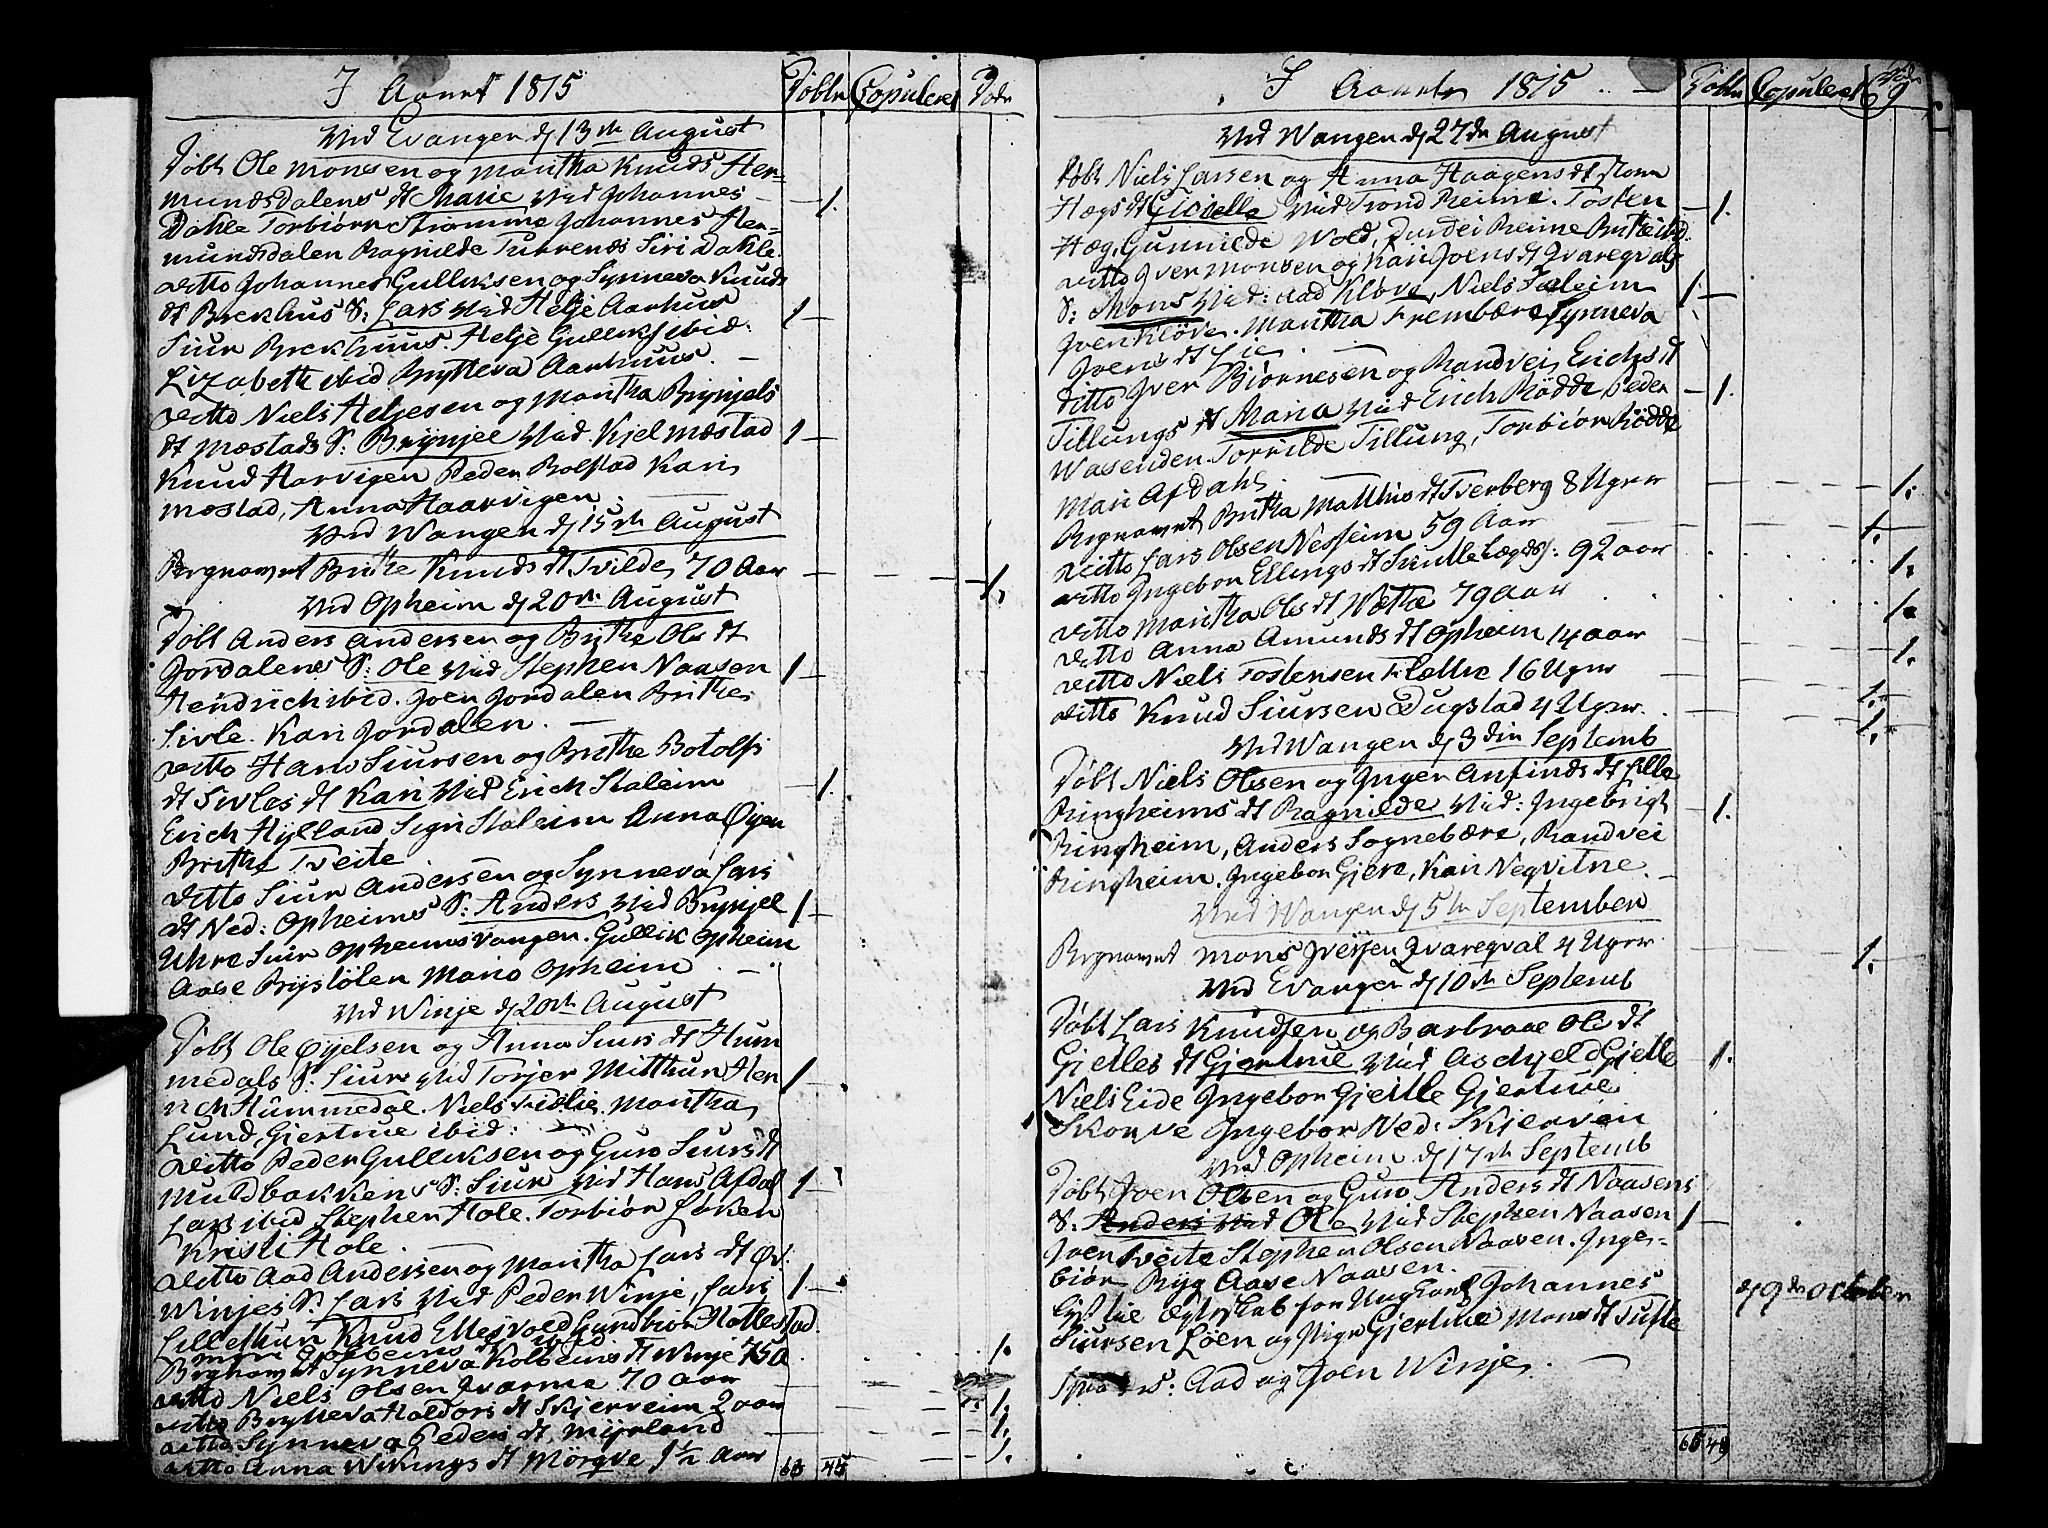 I Aaret 1815 Döbte Copuleret Döde
Ved Evanger d 13de August
Döbt Ole Monsen og Maritha Knuds Her-
mundsdalens dt Marie Vid Johannes 1.
Dahle Torbiörn Strömme Johannes Her-
mundsdalen Ragnilde Siri Dahle
ditto Johannes Gulliksen og Synneva Knuds
dt Brekhus S: Lars Vid Helje Aarhuus 1
Siur Brekhuus Helje Gulliks ibid:
Lizabeth ibid Brytteva Aarhuus.
ditto Niels Heljesen og Maritha Brynjels
dt Mæstads S: Brynjel Vid Kjel Mæstad 1
Knud Horvigen Peder Bolstad Kari
Mæstad, Anna Haarvigen.
Ved Wangen d 15de August
Begravet Brithe Knuds dt Tvilde 70 Aar 1.
Ved Opheim d 20de August
Döbt Anders Andersen og Brithe Ols dt
Jordalens S: Ole Vid Stephen Naasen 1
Hendrich ibid. Joen Jordalen Brithe
Sivle. Kari Jordalen.
ditto Hans Siursen og Brithe Botolfs
dt Sivles dt Kari Vid Erich Staleim 1.
Erich Hylland Sigri Staleim Anna Öyen
Brithe Tveite
ditto Siur Andersen og Synneva Lars
dt Ned: Opheims S: Anders Vid Brynjel 1
Uhre Siur Opheimsvangen. Gullik Opheim
Aase Bystölen Mario Opheim.
Ved Winje d 20de August
Döbt Ole Öyelsen og Anna Siurs dt Hum
medals S: Siur Vid Torjer Mitthun Hen 1
rich Hummedal. Niels Maritha
Lund, Giertrue ibid:
ditto Peder Gulliksen og Guro Siurs dt
Muldbakkens S: Siur Vid Hans Afdal 1
Lars ibid Stephen Hole. Torbiör Löken
Kristi Hole.
ditto Aad Andersen og Maritha Lars dt Öv.
Winjes S: Lars Vid Peder Winje, Lars 1
Lillethun Knud Gundbior Hollestad.
Begravet Synneva Kolbeins dt Winje 75 a 1.
ditto Niels Olsen 70 aar
ditto Brytteva Haldors dt Skjerveim 2 aar 1.
ditto Synneva Peders dt Myrland 1.
ditto Anna Wikings dt Mörqve 1½ Aar 1.
63 45
I Aaret 1815 Döbte Copuleret Döde 9
Ved Wangen d 27de August
Döbt Niels Larsen og Anna Haagens dt Store
Hægs dt Giorelle Vid Trond Reime. Tosten 1.
Hæg, Gunnilde Wold, Durdei Reime Brithe ibid.
ditto Iver Monsen og Kari Joens dt Qvareqvals
S: Mons Vid: Aad Klöve, Niels Saleim 1
Joen Klöve. Maritha Frembære Synneva
Joens dt Lie.
ditto Iver Biörnesen og Randvei Erichs dt
Tillungs dt Maria Vid Erich Rödde Peder 1.
Wasenden Torrilde Tillung, Torbiör Rödde
Mari Afdahl.
Begravet Britha Matthis dt Tverberg 8 Uger 1.
ditto Lars Olsen Nesheim 59 Aar 1.
ditto Ingebor Ellings dt 92 aar 1.
ditto Maritha Ols dt Wæthe 79 aar 1.
ditto Anna Amunds dt Opheim 14 aar 1.
ditto Niels Tostensen 16 Uger 1.
ditto Knud Siursen Dugstad 4 Uger. 1.
Ved Wangen d 3die Septemb
Döbt Niels Olsen og Inger Anfinds dt Lille
Ringheims dt Ragnilde Vid: Ingebrigt 1.
Ringheim, Anders Sognebære, Randvei
Ringheim. Ingebor Gjere, Kari Neqvitne.
Ved Wangen d 5te September
Begravet Mons Iversen Qvareqval 4 Uger 1.
Ved Evanger d 10de Septemb
Döbt Lars Knudsen og Barbraae Ols dt
Gjelles dt Gjertrue Vid Aschjeld Gjelle 1.
Niels Eide Ingebor Gjelle Gjertrue
Skorve Ingebor Ned: Skjerven
Ved Opheim d 17de Septemb
Döbt Joen Olsen og Guro Anders dt Naasens
S: Anders Vid Ole Vid Stephen Naasen 1
Joen Tveite Stephen Olsen Naasen. Inge-
biör Ryg Aase Naasen.
Lyst lie Egteskab for Ungkarl Johannes d 9de October
Siursen Löen og Pige Gjertrue Mons dt Tufte
: Aad og Joen Winje.
65 49